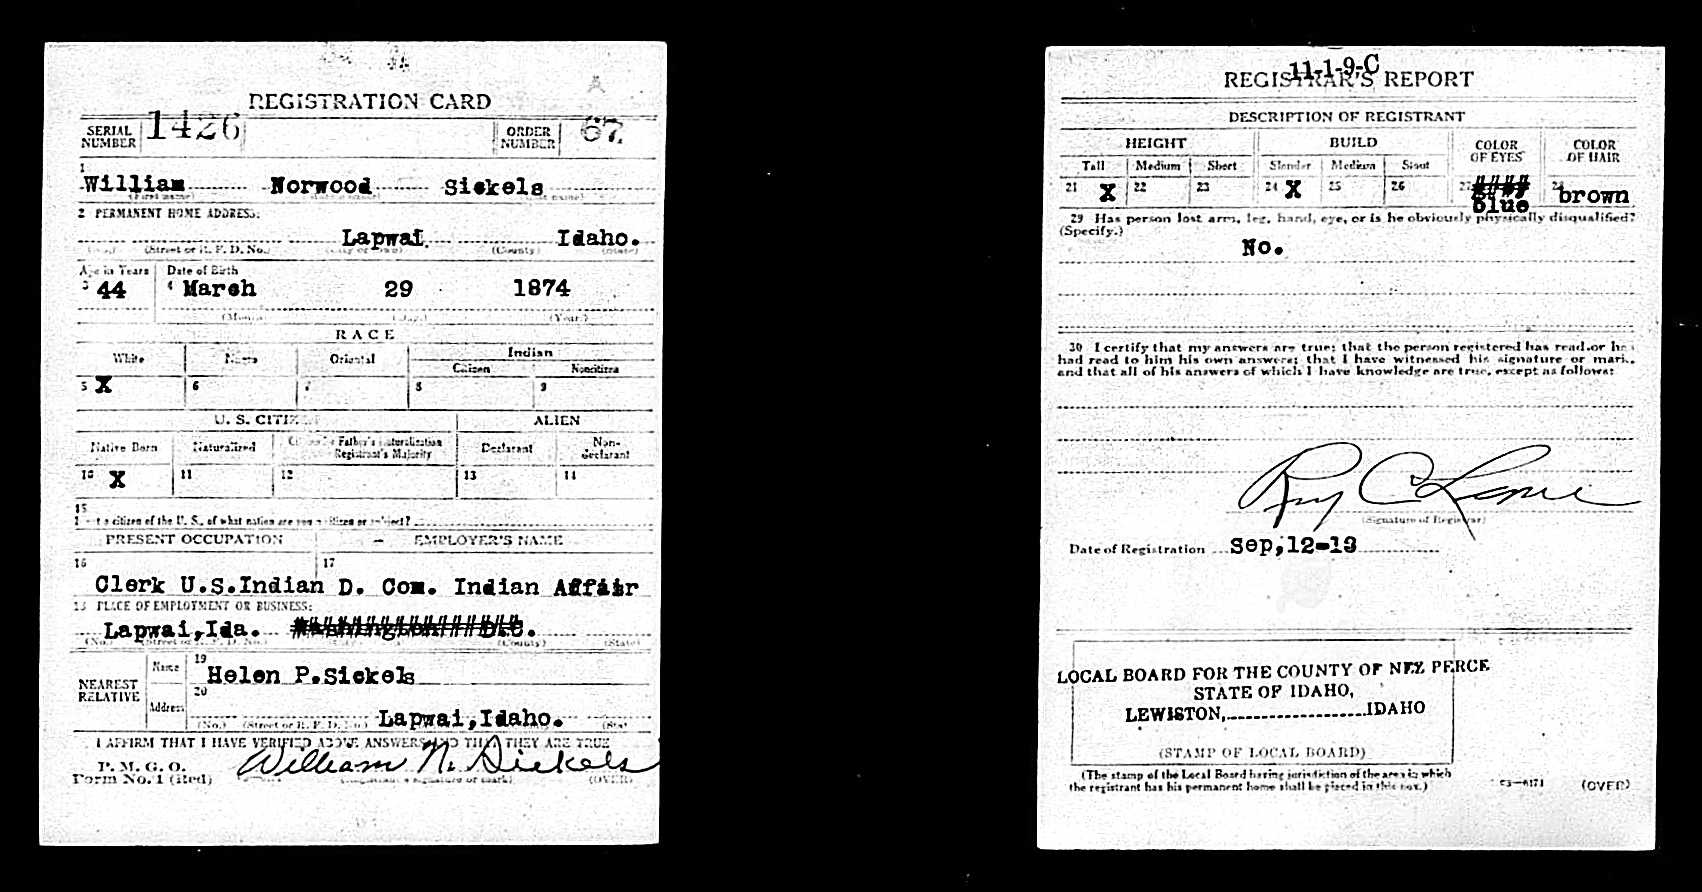 REGISTRATION CARD
SERIAL NUMBER 1426 ORDER NUMBER 67
1 William Norwood Sickels
(First name) (Last name)
2 PERMANENT HOME ADDRESS:
Lapwai Idaho.
(Street or R. F. D. No.) (County) (State)
Age in Years Date of Birth
3 44 4 March 29 1874
(Month) (Day) (Year)
RACE
White Negro Oriental Indian
Citizen Noncitizen
5 X 6 7 8 9
U. S. CITIZEN ALIEN
Native Born Naturalized Citizen by Father's Naturalization Registrant's Majority Declarant Non-declarant
10 X 11 12 13 14
15
If not a citizen of the U. S., of what nation are you a citizen or subject?
PRESENT OCCUPATION EMPLOYER'S NAME
16 17
Clerk U.S.Indian D. Com. Indian Affair
18 PLACE OF EMPLOYMENT OR BUSINESS:
Lapwai,Ida. Washington D.C.
(No.) (Street or R. F. D. No.) (County) (State)
NEAREST RELATIVE Name 19 Helen P.Sickels
Address 20 Lapwai,Idaho.
(No.) (Street or R. F. D. No.)
I AFFIRM THAT I HAVE VERIFIED ABOVE ANSWERS AND THAT THEY ARE TRUE
P. M. G. O.
Form No. 1 (Red) William N. Sickels
(Registrant's signature or mark) (OVER)
11-1-9-C
REGISTRAR'S REPORT
DESCRIPTION OF REGISTRANT
HEIGHT BUILD COLOR OF EYES COLOR OF HAIR
Tall Medium Short Slender Medium Stout
21 X 22 23 24 X 25 26 27 blue 28 brown
29 Has person lost arm, leg, hand, eye, or is he obviously physically disqualified?
(Specify.)
No.
30 I certify that my answers are true; that the person registered has read or has
had read to him his own answers; that I have witnessed his signature or mark,
and that all of his answers of which I have knowledge are true, except as follows:
Roy C
(Signature of Registrar)
Date of Registration Sep,12-18
LOCAL BOARD FOR THE COUNTY OF NEZ PERCE
STATE OF IDAHO,
LEWISTON, IDAHO
(STAMP OF LOCAL BOARD)
(The stamp of the Local Board having jurisdiction of the area in which
the registrant has his permanent home shall be placed in this box.)
03—6171 (OVER)